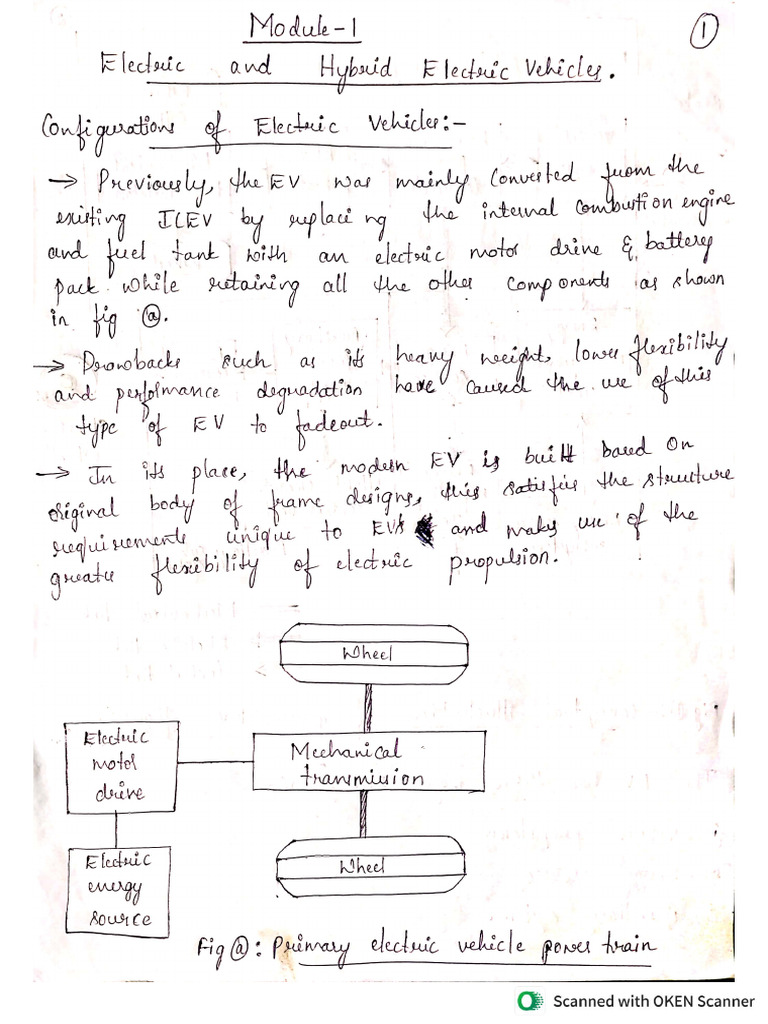 Module-1
1
Electric and Hybrid Electric Vehicles.
Configurations of Electric Vehicles:-
→ Previously, the EV was mainly Converted from the
existing ICEV by replacing the internal combustion engine
and fuel tank with an electric motor drive & battery
pack while retaining all the other components as shown
in fig ⓐ.
→ Drawbacks such as its heavy weight, lower flexibility
and performance degradation have caused the use of this
type of EV to fadeout.
→ In its place, the modern EV is built based on
original body of frame designs, this satisfies the structure
requirements unique to EVs and makes use of the
greater flexibility of electric propulsion.
Wheel
Electric
motor
drive
Mechanical
transmission
Electric
energy
source
Wheel
Fig ⓐ: Primary electric vehicle power train
Scanned with OKEN Scanner